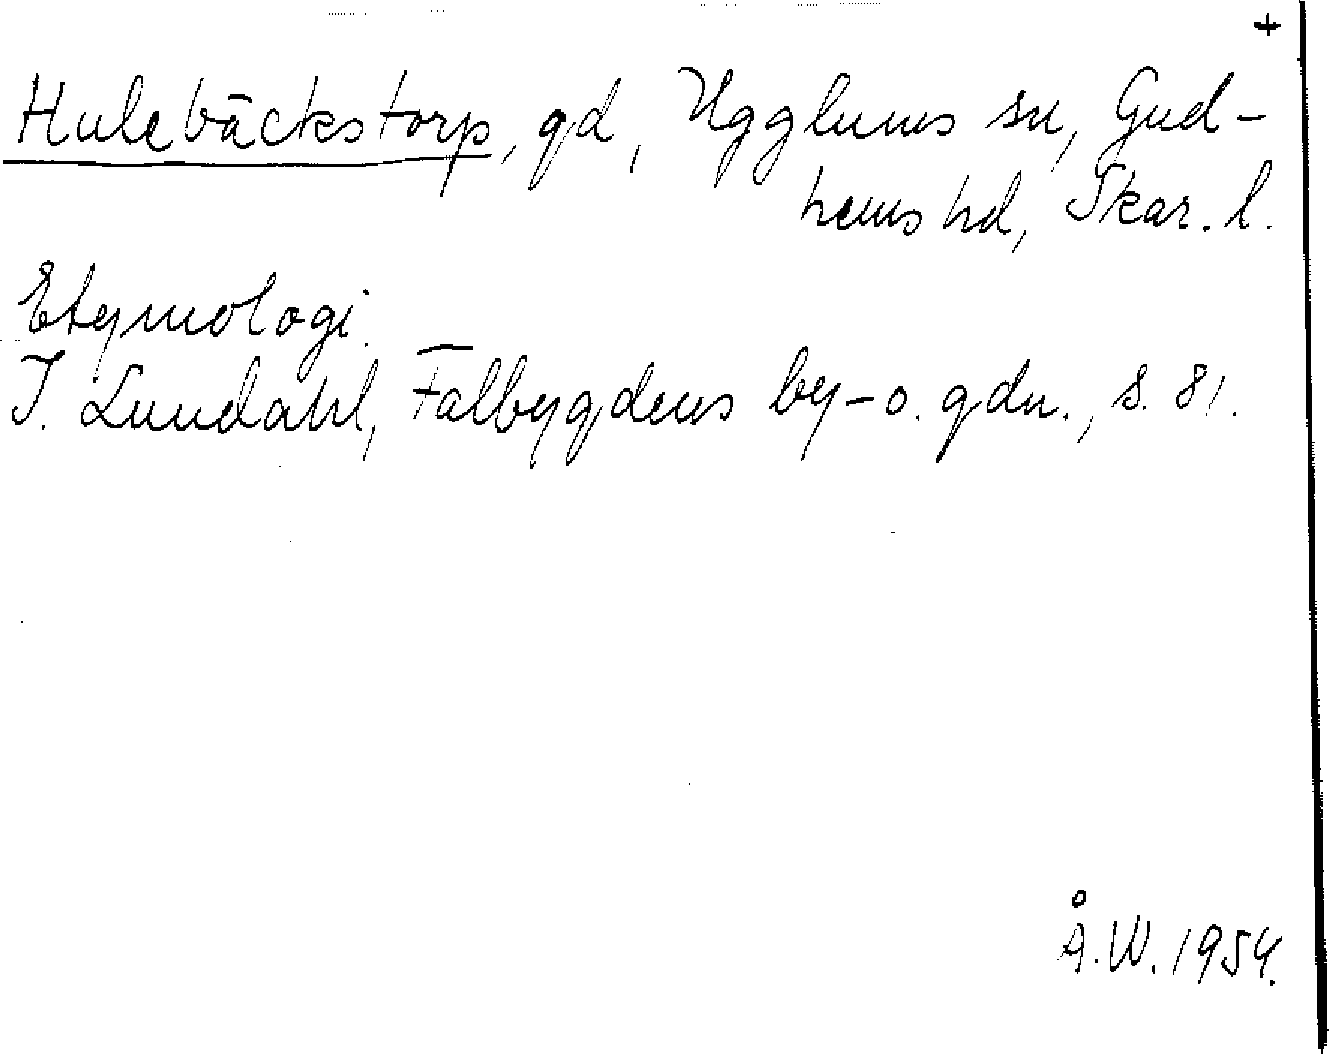 +
Hulebäckstorp, gd, Ugglums sn, Gud-
hems hd, Skar. l.
Etymologi.
I. Lundahl, Falbygdens by- o. gdn., s. 81.
Å.W. 1954.